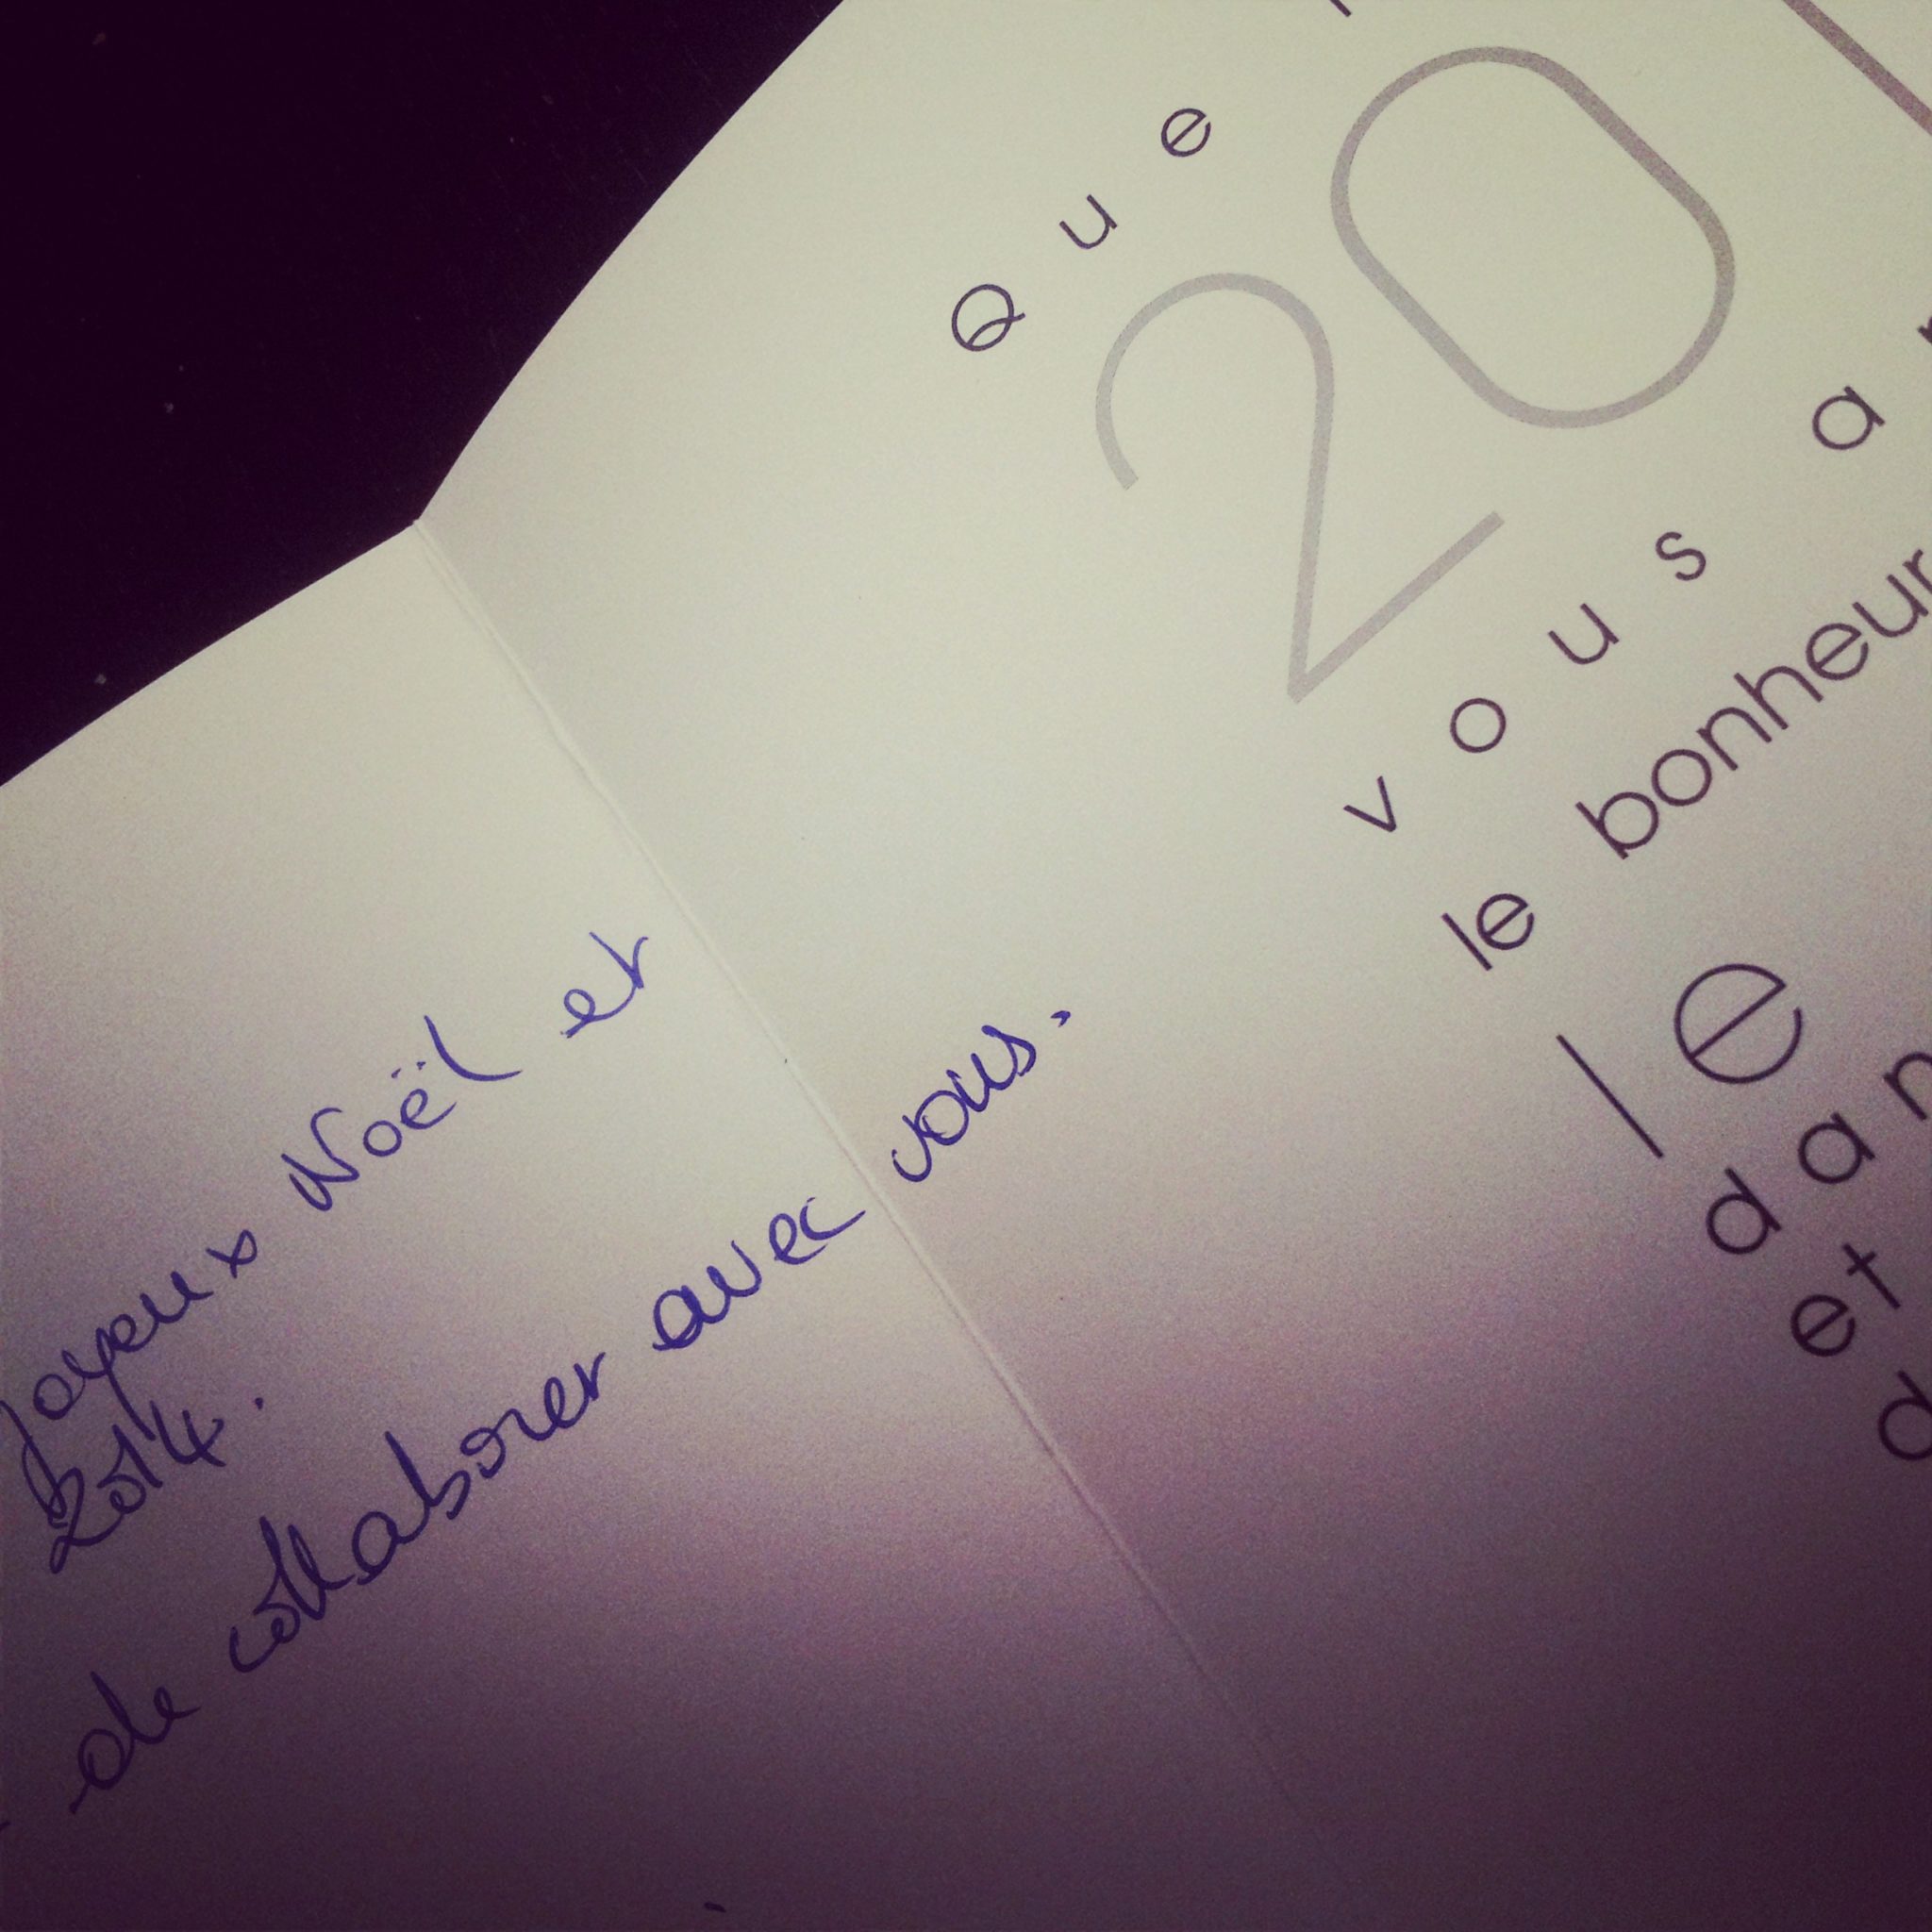 Joyeux Noël et
2014.
de collaborer avec vous.
Que
20
vous
le bonheur
le
et